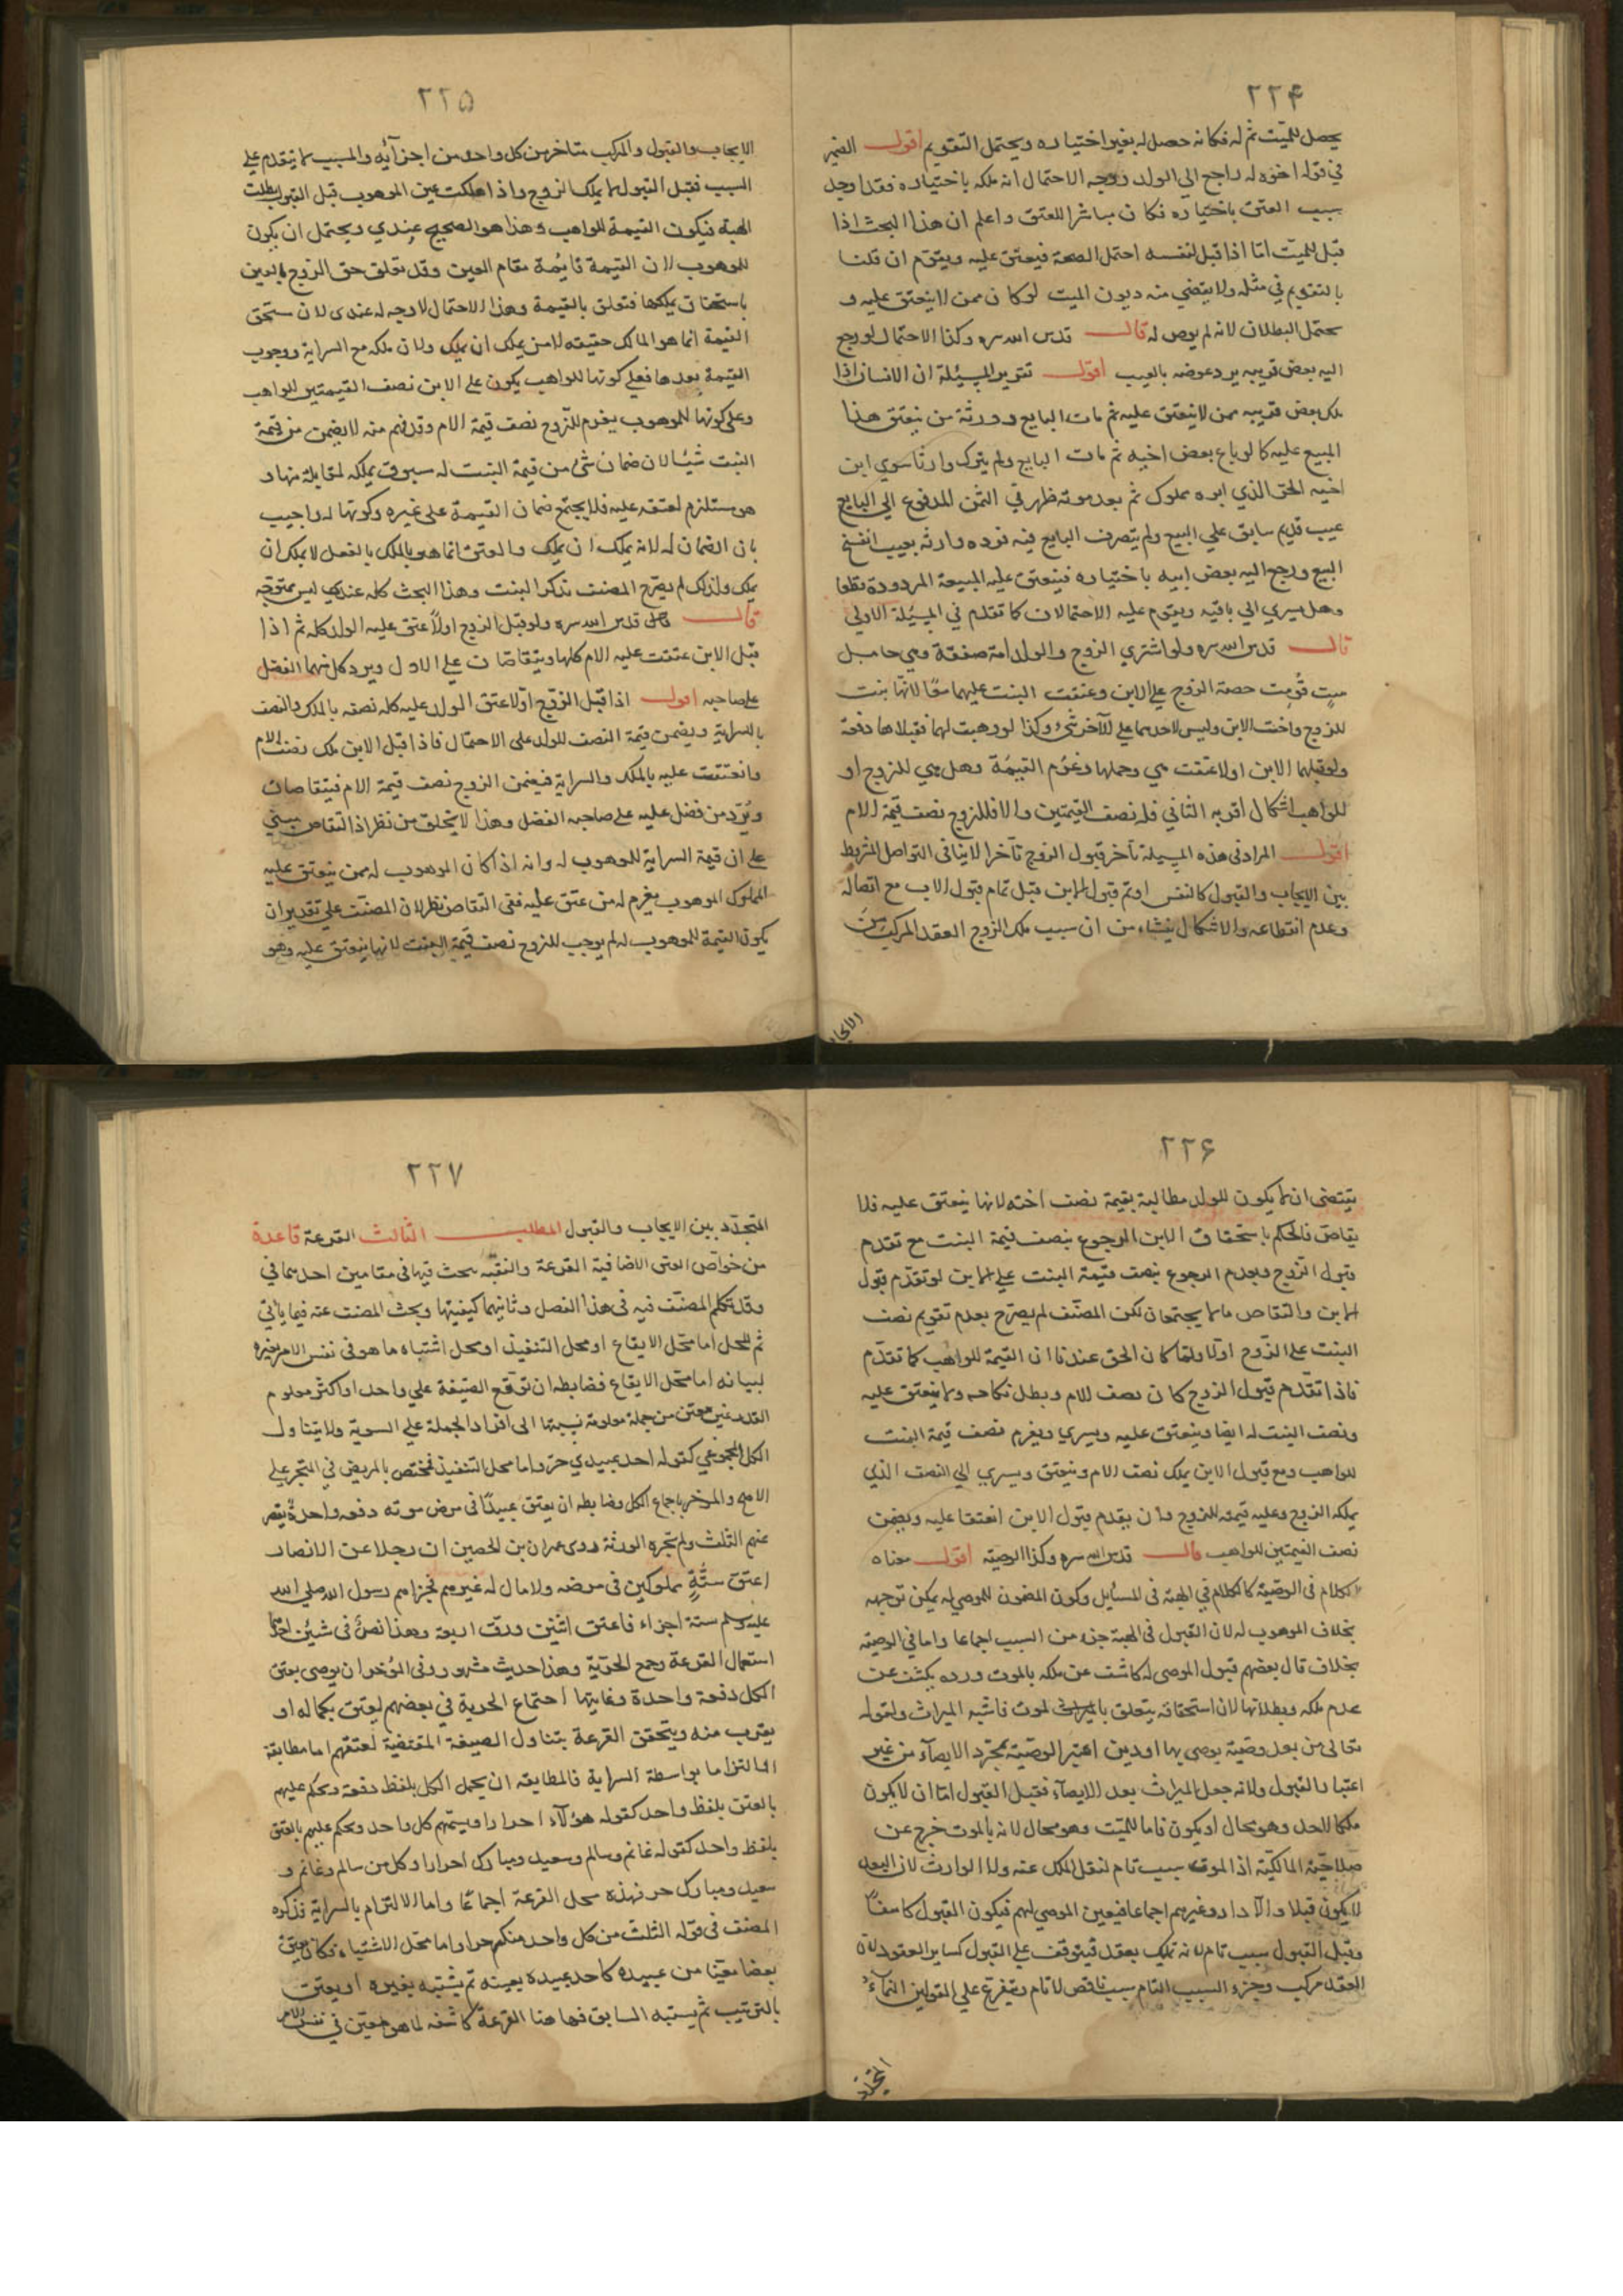 ۲۲۴
يحصل للميّت ثم له فكانه حصل له بغير اختياره ويحتمل التقويم اقول الضمير
في قوله اخوه له راجع الى الولد ووجه الاحتمال انه ملكه باختياره فقد اوجد
سبب العتق باختياره فكان مباشرا للعتق واعلم ان هذا البحث اذا
قبل للميّت امّا اذا قبل لنفسه احتمل الصحة فيعتق عليه ويقوّم ان قلنا
بالتقويم في مثله ولا يقضي منه ديون الميت لو كان ممن لا ينعتق عليه و
يحتمل البطلان لانه لم يوص له قال قدس الله سره وكذا الاحتمال لو رجع
اليه بعض قريبه برد عوضه بالعيب اقول تقرير المسئلة ان الانسان اذا
ملك بعض قريبه ممن لا ينعتق عليه ثم مات البايع وورثة من ينعتق هذا
المبيع عليه كما لو باع بعض اخيه ثم مات البايع ولم يترك وارثا سوي ابن
اخيه الحق الذي ابوه مملوك ثم بعد موته ظهر في الثمن المدفوع الي البايع
عيب قديم سابق علي البيع ولم يتصرف البايع فيه فرده وارثه بعيب انفسخ
البيع ورجع اليه بعض ابيه باختياره فينعتق عليه المبيعة المردودة قطعا
وهل يسري الي باقيه ويقوم عليه الاحتمالان كما تقدم في المسئلة الاولي
قال قدس الله سره ولو اشتري الزوج والولد امة صفقة وهي حامل
ببنت قُوّمت حصة الزوج علي الابن وعتقت البنت عليهما معًا لانّها بنت
للزوج واخت الابن وليس لاحدهما علي الآخر شيء وكذا لو وهبت لهما فقبلاها دفعة
ولو قبلهما الابن اولا عتقت هي وحملها وغرم القيمة وهل هي للزوج او
للواهب اشكال اقربه الثاني فله نصف القيمتين والا فللزوج نصف قيمة الام
اقول المراد في هذه المسئلة تأخر قبول الزوج تأخرا لا ينافي التواصل المشترط
بين الايجاب والقبول كالنفس او تم قبول الابن قبل تمام قبول الاب مع اتصاله
وعدم انقطاعه والاشكال ينشاء من ان سبب ملك الزوج العقد المركب من
الايجا
۲۲۵
الايجاب والقبول والمركب متاخر من كل واحد من اجزآئه والمسبب لا يتقدم علي
السبب فقبل القبول لا يملك الزوج واذا هلكت عين الموهوب قبل القبول بطلت
الهبة فيكون القيمة للواهب وهذا هو الصحيح عندي ويحتمل ان يكون
للموهوب لان القيمة قائمة مقام العين وقد تعلق حق الزوج بالعين
باستحقاق يملكها فتعلق بالقيمة وهذا الاحتمال لا وجه له عندي لان مستحق
القيمة انما هو المالك حقيقه لا من يملك ان يملك ولان ملكه مع السراية ووجوب
القيمة بعدها فعلي كونها للواهب يكون علي الابن نصف القيمتين للواهب
وعلي كونها للموهوب يغرم للزوج نصف قيمة الام وقد فهم منه لا يضمن من قيمة
البنت شيئا لان ضمان شيء من قيمة البنت له مسبوق بملكه لمقابله منها و
هو مستلزم لعتقه عليه فلا يجتمع ضمان القيمة علي غيره وكونها له واجيب
بان الضمان له لانه يملك ان يملك والعتق انما هو بالملك بالفعل لا يملك ان
يملك ولذلك لم يصرح المصنف بذكر البنت وهذا البحث كله عندي ليس بمتوجه
قال قدس الله سره ولو قبل الزوج اولًا عتق عليه الولد كله ثم اذا
قبل الابن عتقت عليه الام كلها ويتقاصان علي الاول ويرد كل منهما الفضل
علي صاحبه اقول اذا قبل الزوج اولا عتق الولد عليه كله نصفه بالملك والنصف
بالسراية ويضمن قيمة النصف للولد علي الاحتمال فاذا قبل الابن ملك نصف الام
وانعتقت عليه بالملك والسراية فيضمن الزوج نصف قيمة الام فيتقاصان
ويُردّ من فضل عليه علي صاحبه الفضل وهذا لا يخلق من نظر اذ التقاص يبتني
علي ان قيمة السراية للموهوب له وانه اذا كان الموهوب له ممن ينعتق عليه
المملوك الموهوب يغرم له من عتق عليه ففي التقاص نظر لان المصنف علي تقدير ان
يكون القيمة للموهوب له لم يوجب للزوج نصف قيمة البنت لانها ينعتق عليه وهو
۲۲۶
يقتضي ان لا يكون للولد مطالبة بقيمة نصف اخته لانها ينعتق عليه فلا
يقاصّ فالحكم باستحقاق الابن الرجوع بنصف قيمة البنت مع تقدم
قبول الزوج وبعدم الرجوع بنصف قيمة البنت علي الابن لو تقدم قبول
الابن والتقاص مما لا يجتمعان لكن المصنّف لم يصرّح بعدم تقويم نصف
البنت علي الزّوج اولا ولمّا كان الحق عندنا ان القيمة للواهب كما تقدّم
فاذا تقدّم قبول الزوج كان نصف الام وبطل نكاحه ولا ينعتق عليه
ونصف البنت له ايضا وينعتق عليه ويسري ويغرم نصف قيمة البنت
للواهب ومع قبول الابن يملك نصف الام وينعتق ويسري الي النصف الذي
يملكه الزوج وعليه قيمته للزوج وان يقدم قبول الابن انعتقا عليه ويضمن
نصف القيمتين للواهب قال قدس الله سره وكذا الوصية اقول معناه
الكلام في الوصيّة كالكلام في الهبة في المسايل وكون المضمون للموصي له يمكن توجيهه
بخلاف الموهوب له لان القبول في الهبة جزء من السبب اجماعا واما في الوصية
بخلاف قال بعضهم قبول الموصي له كاشف عن ملكه بالموت ورده يكشف عن
عدم ملكه وبطلانها لان استحقاقه يتعلق بالموت فاشبه الميراث ولقوله
تعالى من بعد وصيّة يوصي بها او دين اعتبر الوصيّة بمجرّد الايصآء من غير
اعتبار القبول ولانه جعل الميراث بعد الايصآء فقبل القبول امّا ان لا يكون
ملكا لاحد وهو محال او يكون فاما للميّت وهو محال لانه بالموت خرج عن
صلاحيّة المالكيّة اذ الموت سبب تام لنقل الملك عنه ولا الوارث لان البعد
لا يكون قبلا ولا دارو غيرهم اجماعا فيعين الموصي لهم فيكون القبول كاشفاً
وقيل القبول سبب تام لانه تمليك بعقد فيتوقف علي القبول كساير العقود لان
العقد مركب وجزء السبب التام سبب ناقص لا تام ويتفرع علي القولين النمآء
المتجدّد
۲۲۷
المتجدّد بين الايجاب والقبول المطلب الثالث القرعة قاعدة
من خواصّ العتق الاضافية القرعة والفقيه يبحث فيها في مقامين احدهما في
وقد تكلم المصنّف فيه في هذا الفصل وثانيهما كيفيتها وبحث المصنف عنه فيما يأتي
ثم المحل اما محّل الايقاع او محل التنفيذ او محل اشتباه ما هو في نفس الامر بغيره
لبيانه اما محّل الايقاع فضابطه ان توقع الصّيغة علي واحد او اكثر معلوم
القدر غير معيّن من جملة معلومة نسبتها الى افراد الجملة علي السوية ولا يتناول
الكل المجموعي كقوله احد عبيدي حرّ واما محل التنفيذ فمختص بالمريض في المنجز علي
الاصح والموخر باجماع الكل وضابطه ان يعتق عبيدًا في مرض موته دفعه واحدة يقصر
عنهم الثلث ولم تجزه الورثة روى عمران بن الحصين ان رجلا عن الانصار
اعتق ستّة مملوكين في مرضه ولا مال له غيرهم فجزاهم رسول الله صلي الله
عليه وسلم ستة اجزاء فاعتق اثنين ورق اربعة وهذا نصّ في شيئين
استعمال القرعة وجمع الحريّة وهذا حديث مشهور وفي المؤخر ان يوصي بعتق
الكل دفعة واحدة وغايتها اجتماع الحرية في بعضهم ليعتق بكماله او
يقرب منه ويتحقق القرعة بتناول الصيغة المقتضية لعتقهم اما مطابقة
او التزاما بواسطة السراية فالمطابقه ان يحمل الكل بلفظ دفعة ويحكم عليهم
بالعتق بلفظ واحد كقوله هؤلآء احرار او يسمّيهم كل واحد ويحكم عليهم بالعتق
بلفظ واحد كقوله غانم وسالم وسعيد ومبارك احرار او كل من سالم وغانم و
سعيد ومبارك حر فهذه محل القرعة اجماعًا واما الالتزام بالسراية فذكره
المصنف في قوله الثلث من كل واحد منكم حر واما محّل الاشتباه فكان يعتق
بعضا معيّنا من عبيده كاحد عبيده بعينه ثم يشتبه بغيره او يعتق
بالترتيب ثم يشتبه السابق فها هنا القرعة كاشفه لما هو معيّن في نفس الامر